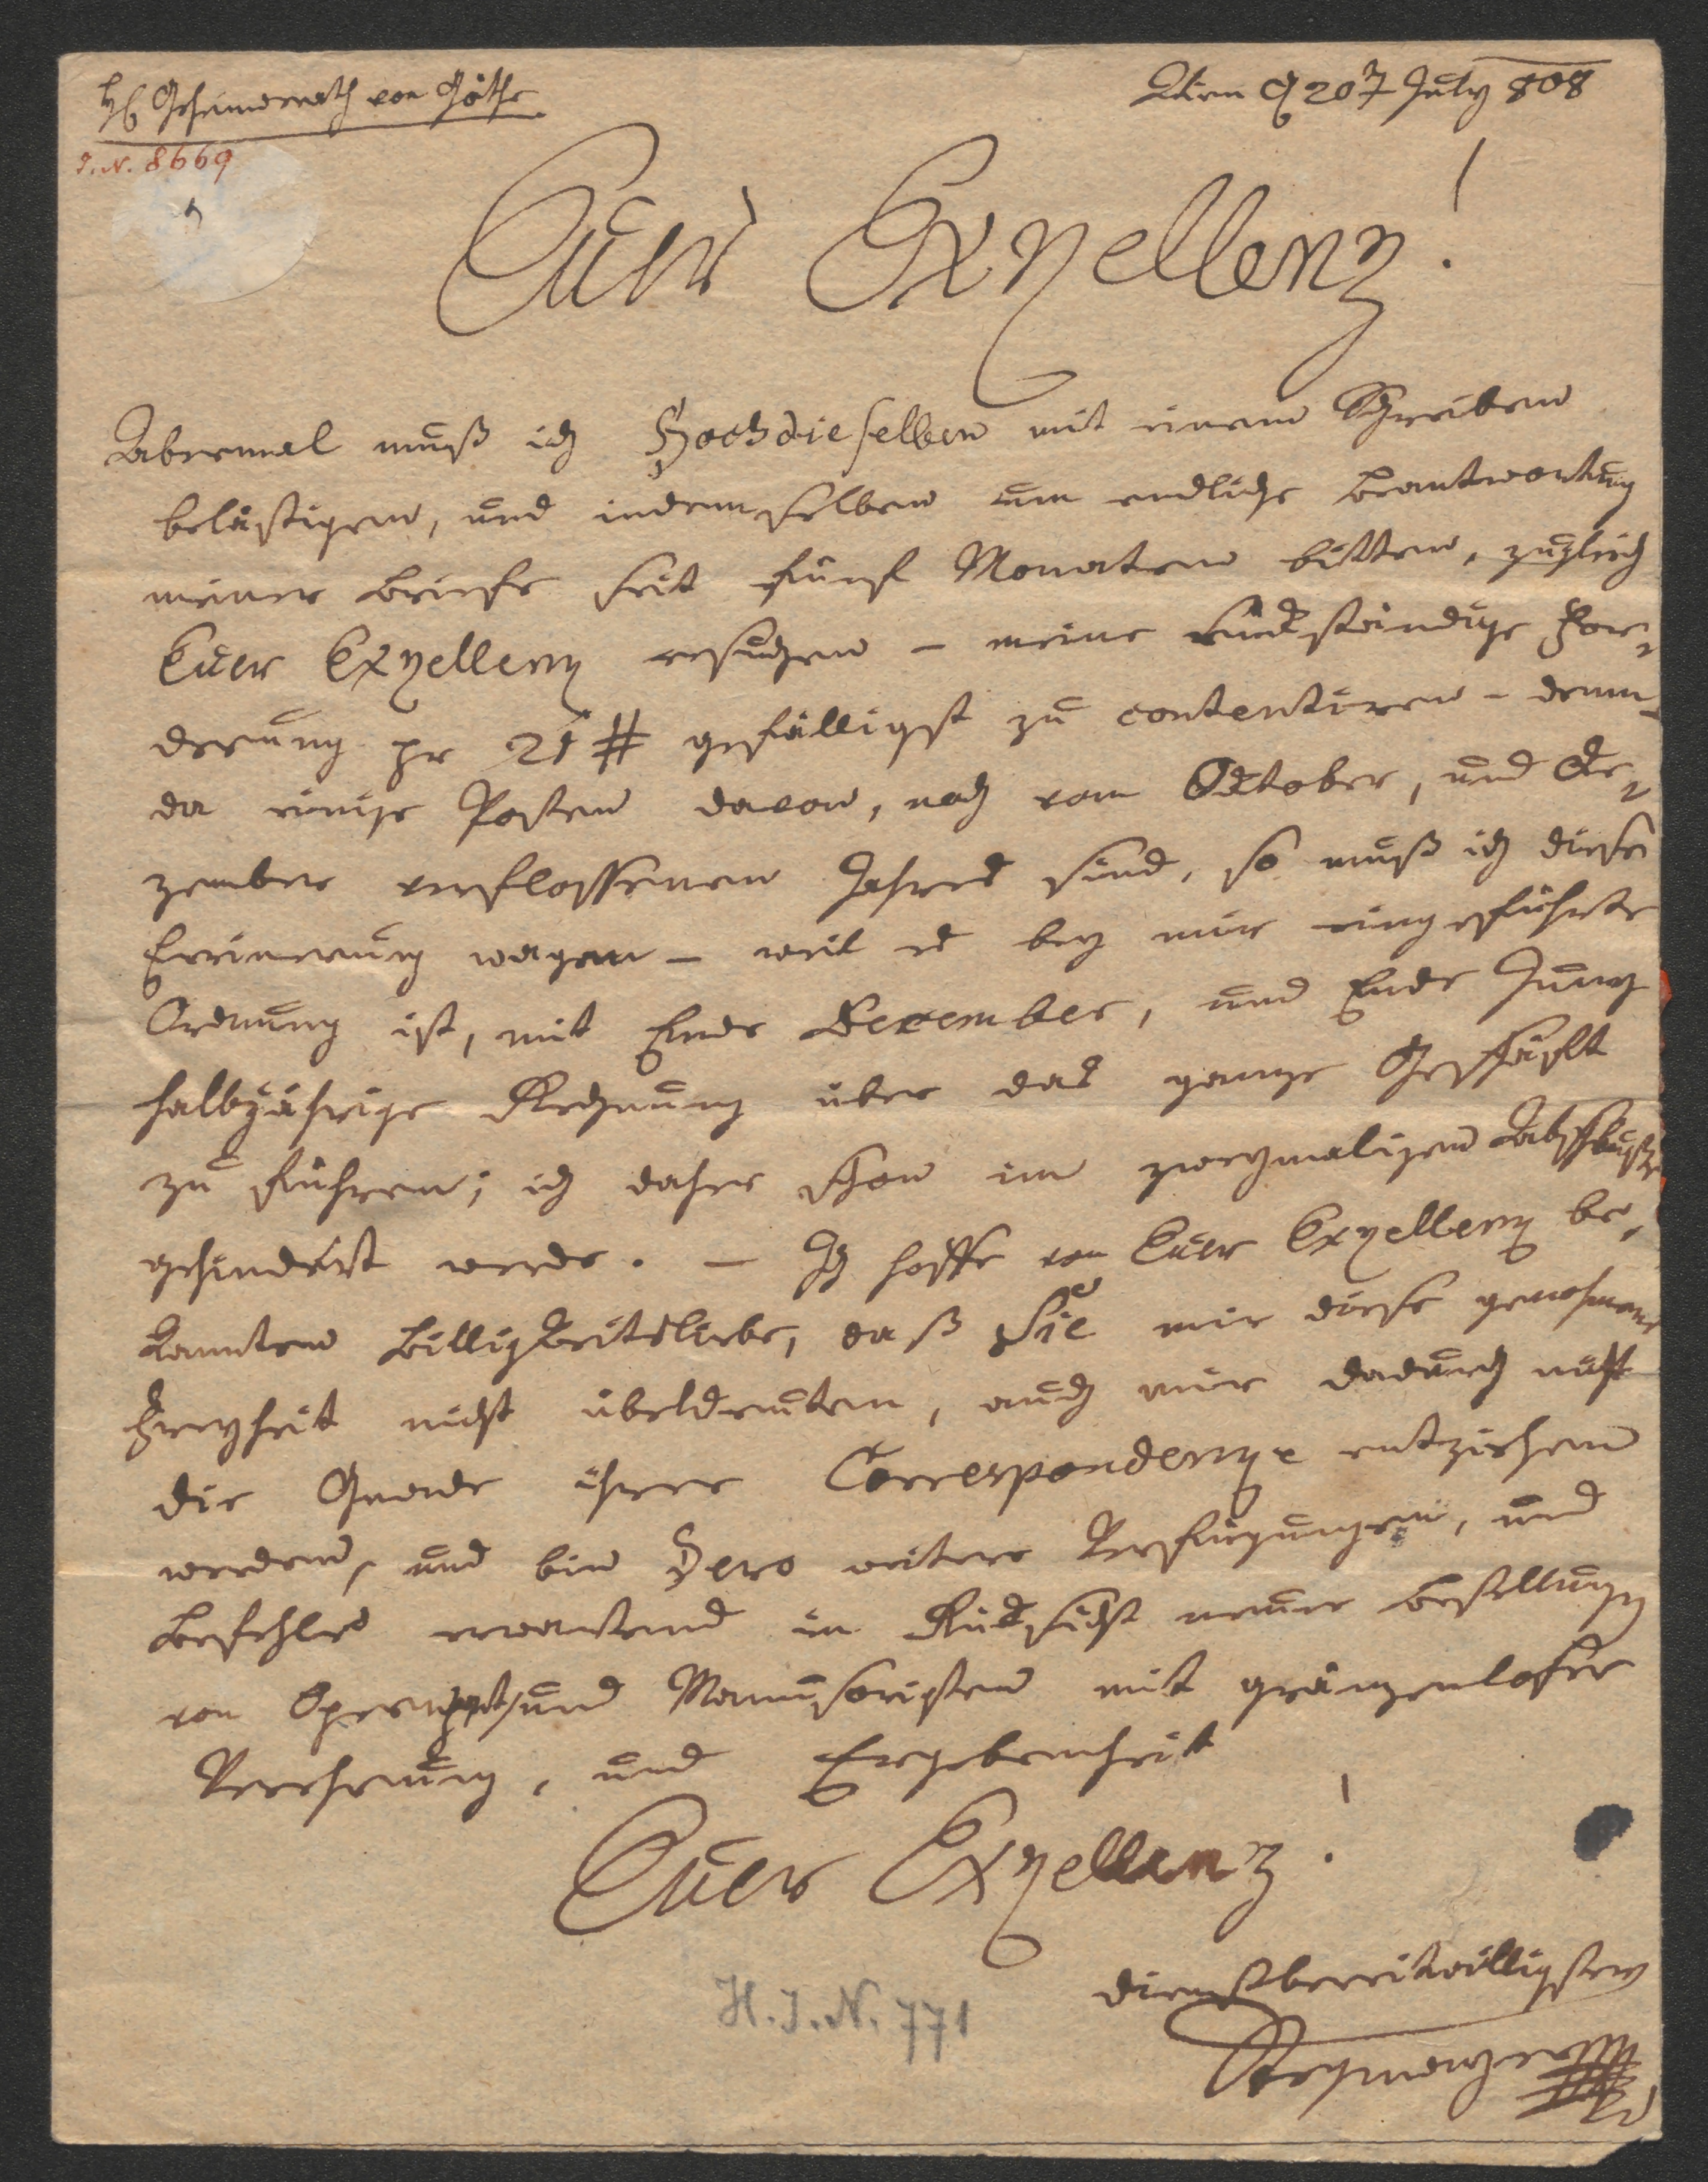 H. Geheimderath von Göthe
Wien d 20t July 808
I.N. 8669
Euer Exzellenz!
Abermal muß ich Hochdieselben mit einem Schreiben
belästigen, und in demselben um endliche Beantwortung
meiner Briefe seit fünf Monaten bitten, zugleich
Euer Exzellenz ersuchen – meine rückständige For-
derung pr 21 # gefälligst zu contentiren – denn
da einige Posten davon, noch vom October, und De-
zember verflossenen Jahres sind, so muß ich diese
Erinnerung wagen – weil es bey mir eingeführte
Ordnung ist, mit Ende December, und Ende Juny
halbjährige Rechnung über das ganze Geschäft
zu führen; ich daher schon im zweymaligen Abschluße
gehindert werde. – Ich hoffe von Euer Exzellenz be-
kannten Billigkeitsliebe, daß Sie mir diese genohmene
Freyheit nicht übeldeuten, auch mir dadurch nicht
die Gnade ihrer Correspondenze entziehen
werden, und bin Dero weitere Verfügungen, und
Befehle erwartend in Rücksicht neuer Bestellungen
von Opern und Manuscripten mit gränzenloser
Verehrung, und Ergebenheit
Euer Exzellenz!
dienstbereitwilligster
Stegmayer
H.I.N. 771